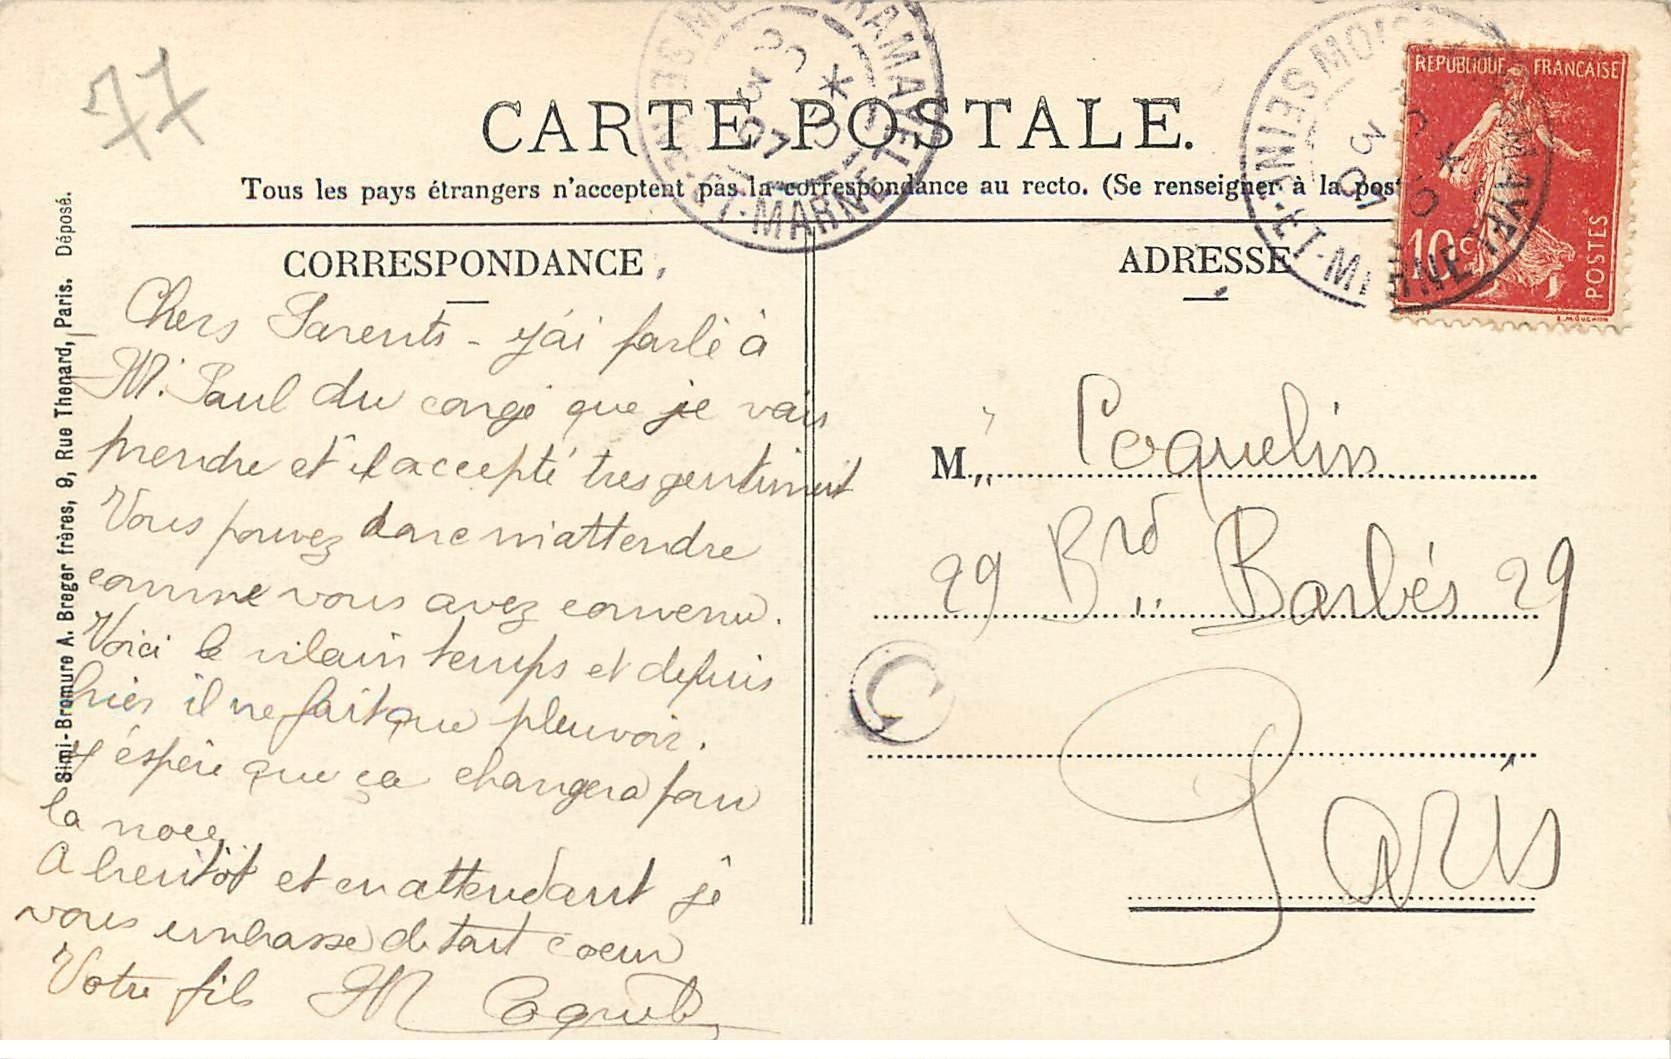 77
CARTE POSTALE.
Tous les pays étrangers n'acceptent pas la correspondance au recto. (Se renseigner à la pos
CORRESPONDANCE
ADRESSE
REPUBLIQUE FRANÇAISE
10 c
POSTES
E. MOUCHON
MOISSY CRAMAYEL
SEINE-ET-MARNE
Simi-Bromure A. Breger frères, 9, Rue Thenard, Paris. Déposé.
Chers Parents - J'ai parlé à
Mr. Paul du congé que je vais
prendre et il a accepté tres gentiment
Vous pouvez donc m'attendre
comme vous avez convenu.
Voici le vilain temps et depuis
hier il ne fait que pleuvoir.
J'éspère que ça changera pour
la noce,
A bientôt et en attendant je
vous embrasse de tout coeur
Votre fils M Coquelin
M Coquelin
29 Brd Barbés 29
Paris